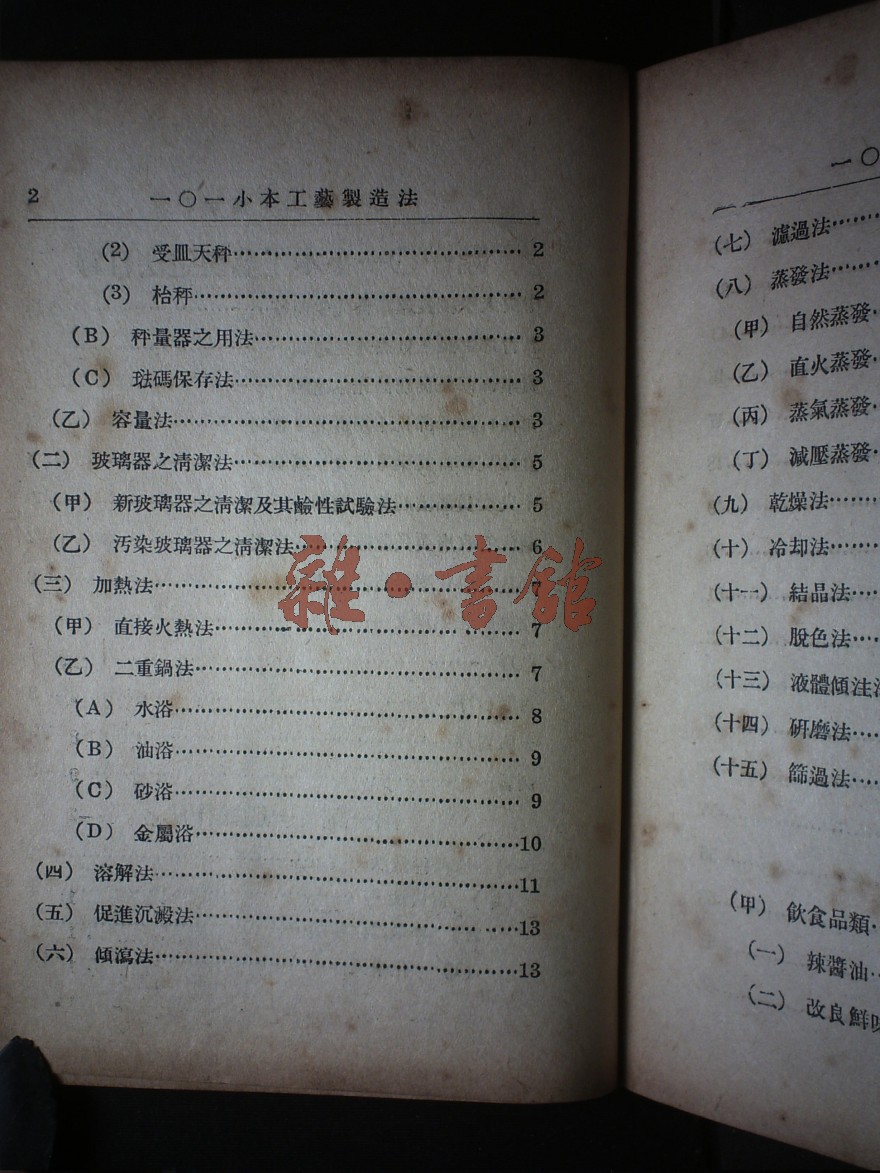 2 一〇一小本工藝製造法
(2) 受皿天秤 2
(3) 枱秤 2
(B) 秤量器之用法 3
(C) 琺碼保存法 3
(乙) 容量法 3
(二) 玻璃器之淸潔法 5
(甲) 新玻璃器之淸潔及其鹼性試驗法 5
(乙) 汚染玻璃器之淸潔法 6
(三) 加熱法 7
(甲) 直接火熱法 7
(乙) 二重鍋法 7
(A) 水浴 8
(B) 油浴 9
(C) 砂浴 9
(D) 金屬浴 10
(四) 溶解法 11
(五) 促進沉澱法 13
(六) 傾瀉法 13
雜·書館
一〇
(七) 濾過法
(八) 蒸發法
(甲) 自然蒸發
(乙) 直火蒸發
(丙) 蒸氣蒸發
(丁) 減壓蒸發
(九) 乾燥法
(十) 冷却法
(十一) 結晶法
(十二) 脫色法
(十三) 液體傾注
(十四) 硏磨法
(十五) 篩過法
(甲) 飮食品類
(一) 辣醬油
(二) 改良鮮